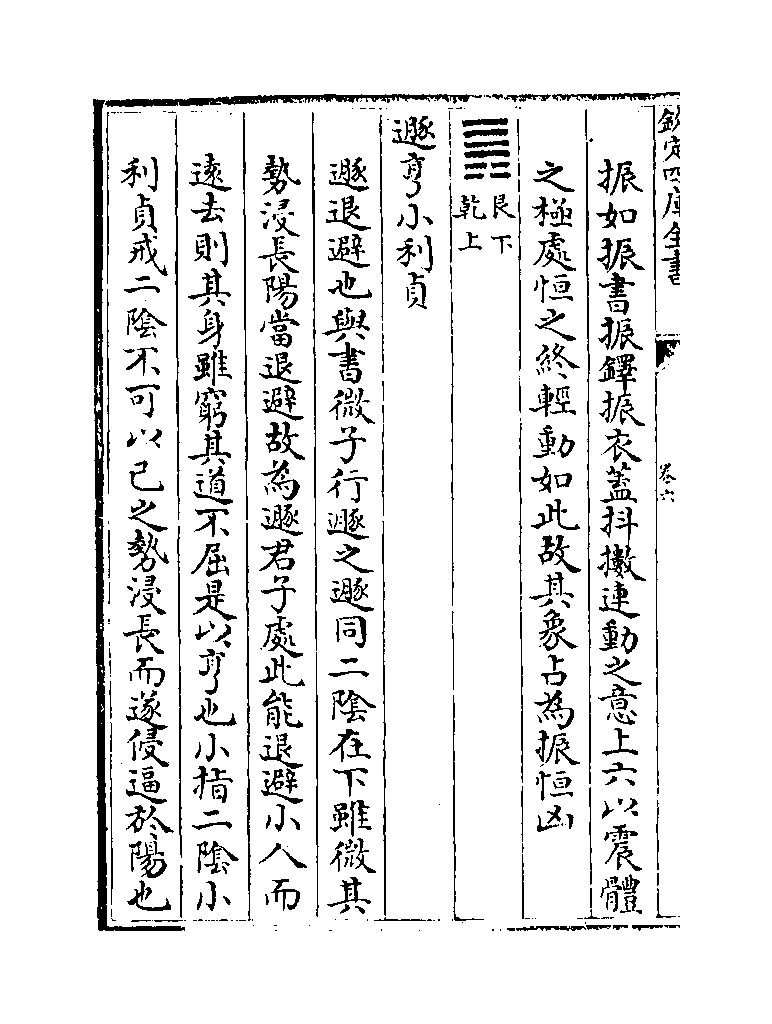 欽定四庫全書
卷六
振如振書振鐸振衣蓋抖擻連動之意上六以震體
之極處恒之終輕動如此故其象占為振恒凶
䷠艮下乾上
遯亨小利貞
遯退避也與書微子行遯之遯同二陰在下雖微其
勢浸長陽當退避故為遯君子處此能退避小人而
遠去則其身雖窮其道不屈是以亨也小指二陰小
利貞戒二陰不可以己之勢浸長而遂侵逼於陽也